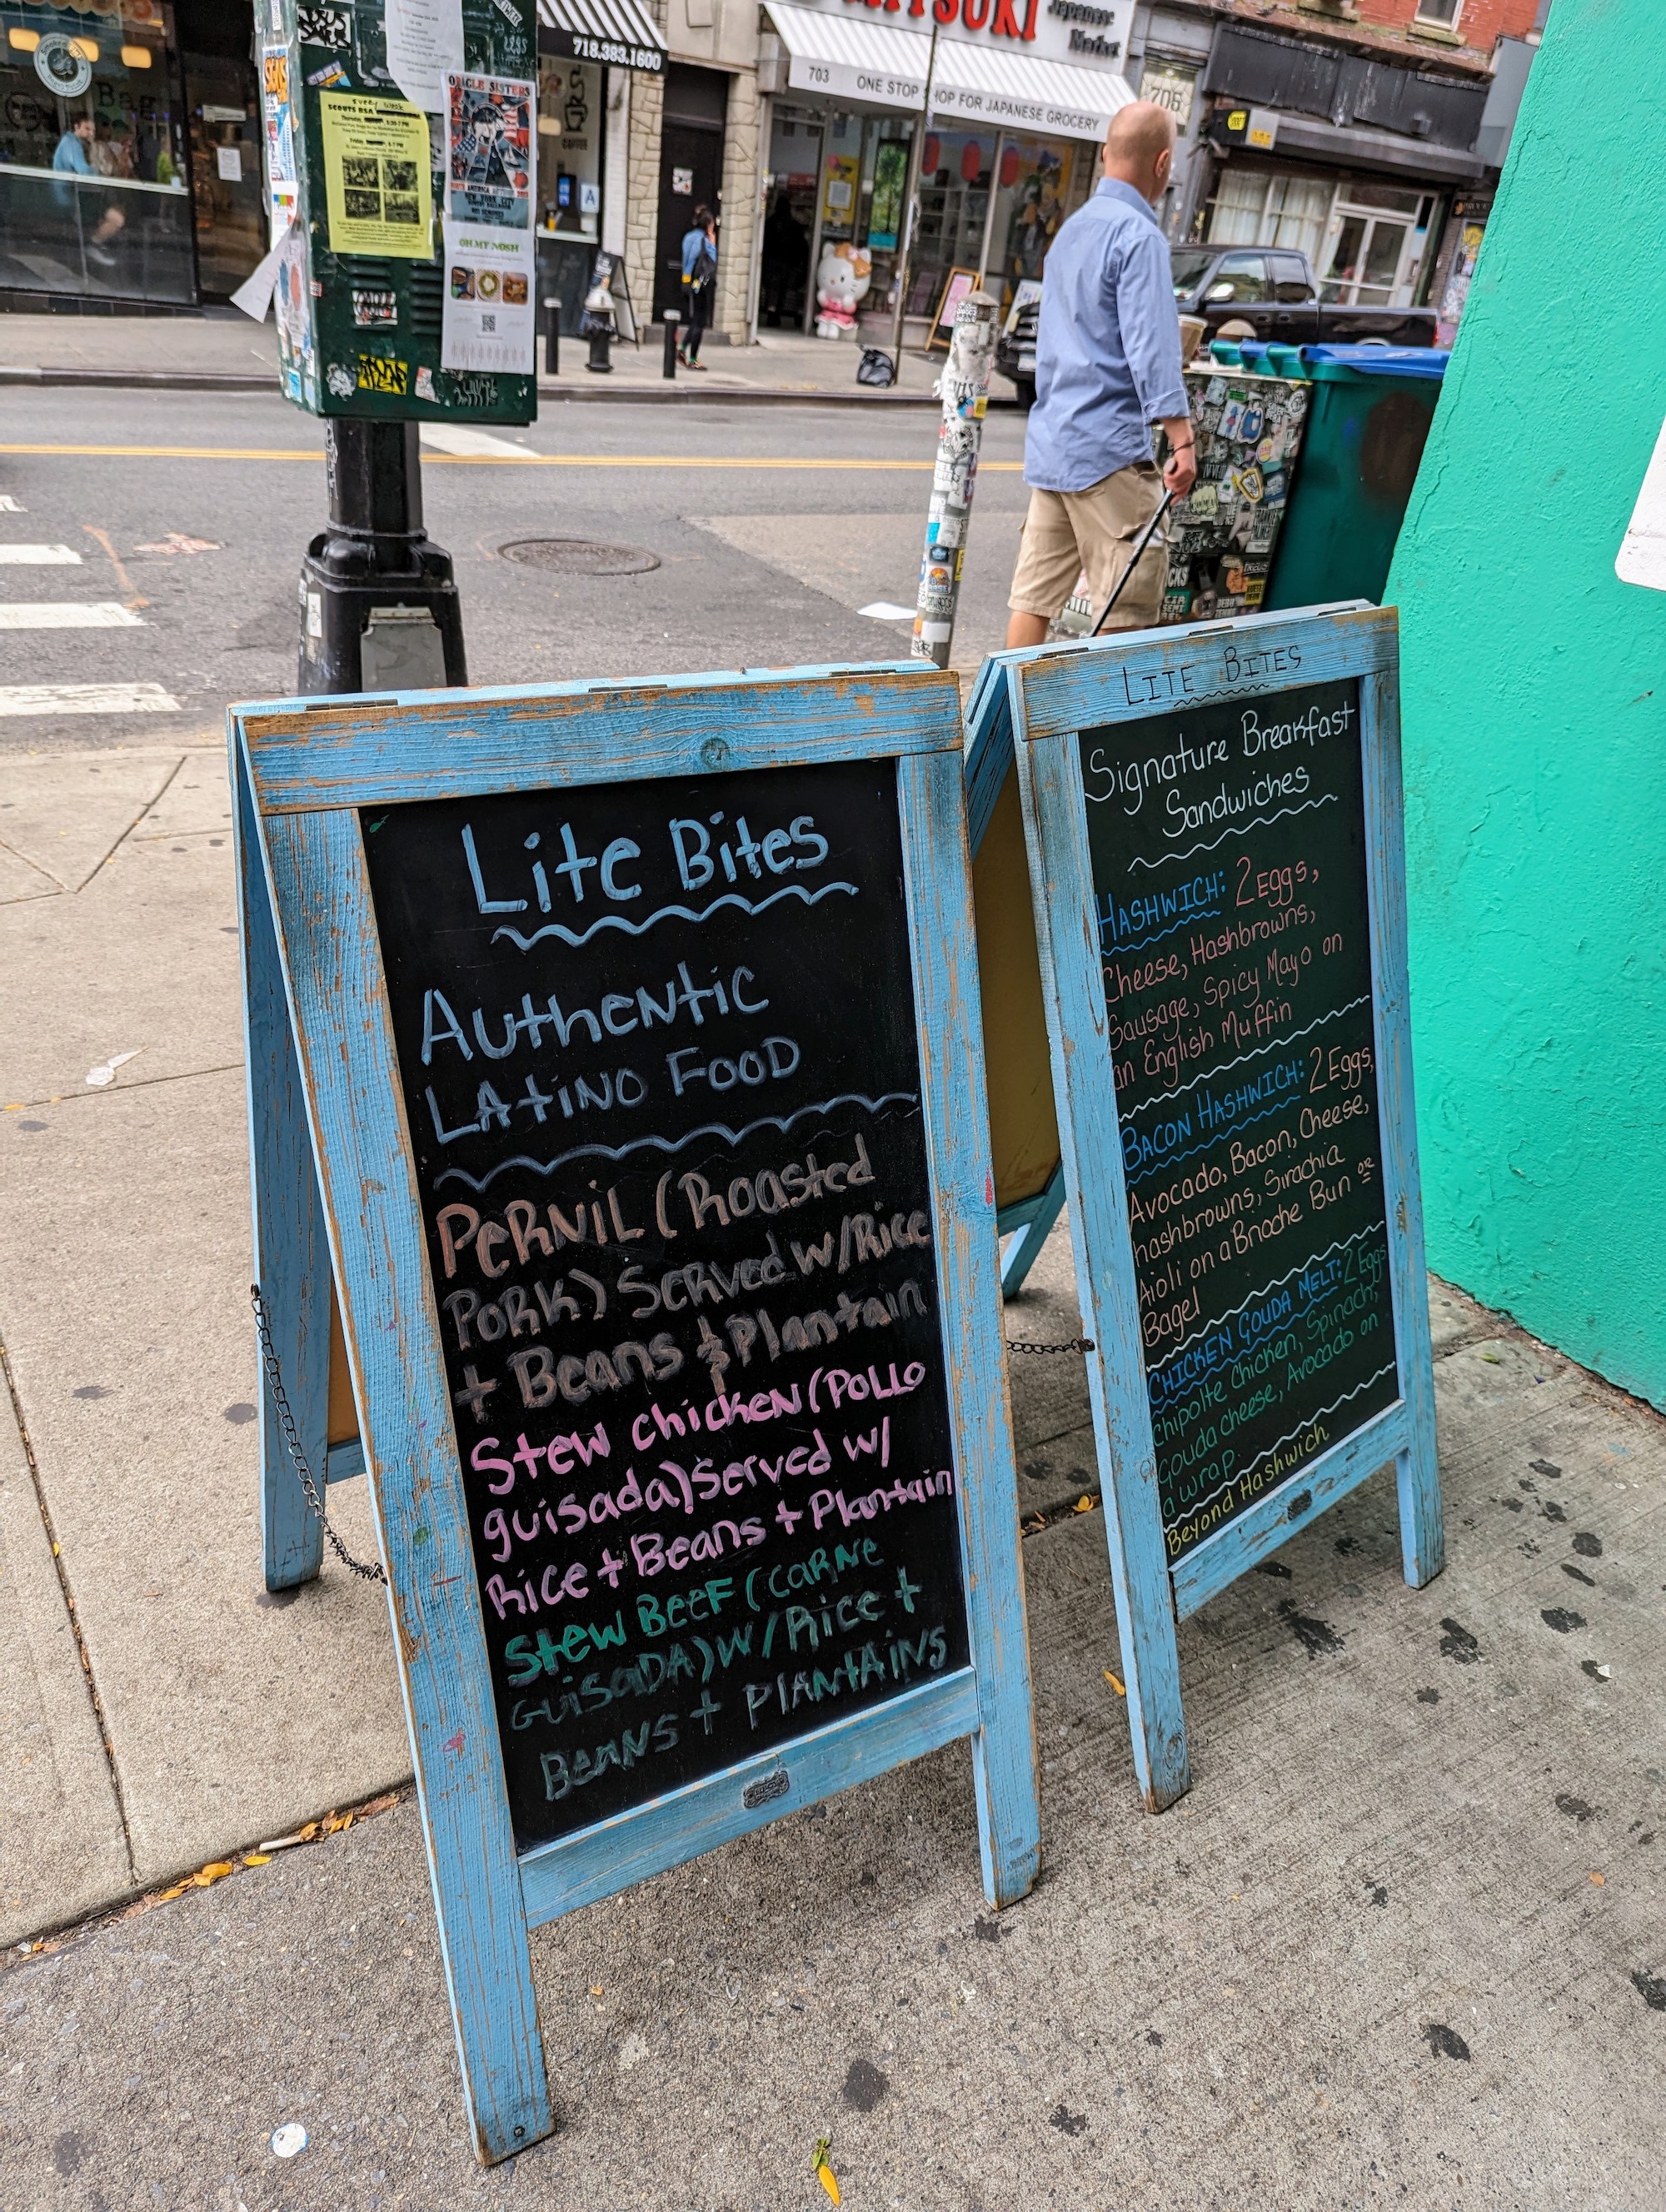 718.383.1600
Japanese
Market
703 ONE STOP SHOP FOR JAPANESE GROCERY
706
A
COFFEE
SCOUTS BSA every week
ORACLE SISTERS
NORTH AMERICA
NEW YORK CITY
OH MY NOSH
Lite Bites
Authentic
Latino Food
Pernil (Roasted
Pork) Served w/Rice
+ Beans & Plantain
Stew chicken (Pollo
guisada) Served w/
Rice + Beans + Plantain
Stew Beef (carne
Guisada) w/Rice +
Beans + Plantains
LITE BITES
Signature Breakfast
Sandwiches
HASHWICH: 2 Eggs,
Cheese, Hashbrowns,
Sausage, Spicy Mayo on
an English Muffin
BACON HASHWICH: 2 Eggs,
Avocado, Bacon, Cheese,
hashbrowns, Sirachia
Aioli on a Brioche Bun or
Bagel
CHICKEN GOUDA MELT: 2 Eggs
Chipolte Chicken, Spinach,
gouda cheese, Avocado on
a wrap
Beyond Hashwich